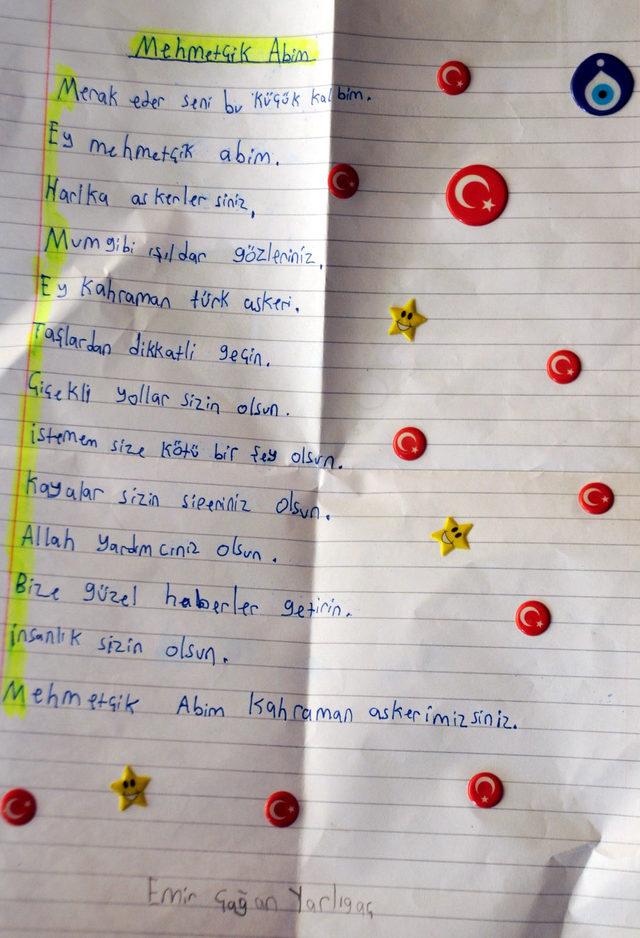 Mehmetçik Abim
Merak eder seni bu küçük kalbim.
Ey mehmetçik abim.
Harika askerlersiniz,
Mum gibi ışıldar gözleriniz,
Ey kahraman türk askeri.
Taşlardan dikkatli geçin.
Çiçekli yollar sizin olsun.
istemem size kötü bir şey olsun.
Kayalar sizin siperiniz olsun.
Allah yardımcınız olsun.
Bize güzel haberler getirin.
insanlık sizin olsun.
Mehmetçik Abim kahraman askerimizsiniz.
Emir Çağan Yarlıgaç